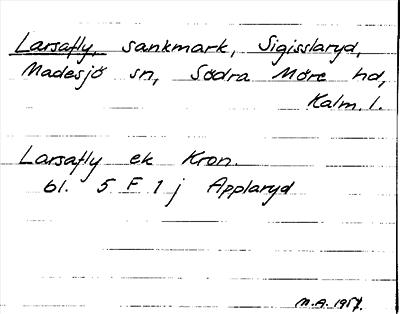 Larsafly, sankmark, Sigisslaryd,
Madesjö sn, Södra Möre hd,
Kalm. l.
Larsafly ek Kron.
bl. 5 F 1 j Applaryd
M.A. 1957.